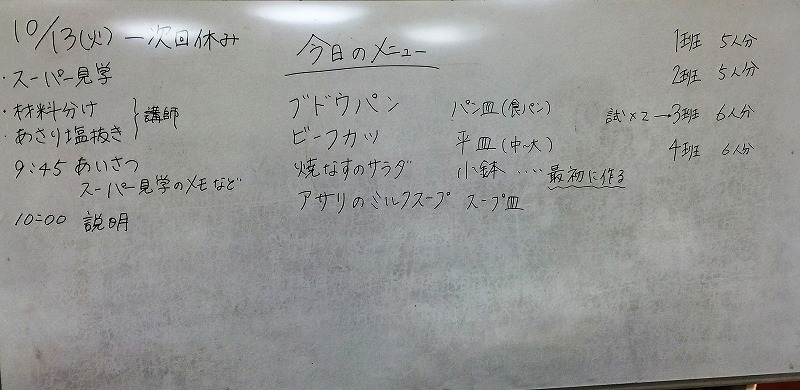 10/13(火) 一次回休み
・スーパー見学
・材料分け
・あさり塩抜き } 講師
9:45 あいさつ
スーパー見学のメモなど
10:00 説明
今日のメニュー
ブドウパン パン皿(食パン)
ビーフカツ 平皿(中~大)
焼なすのサラダ 小鉢 ‥‥ 最初に作る
アサリのミルクスープ スープ皿
1班 5人分
2班 5人分
試×2→3班 6人分
4班 6人分